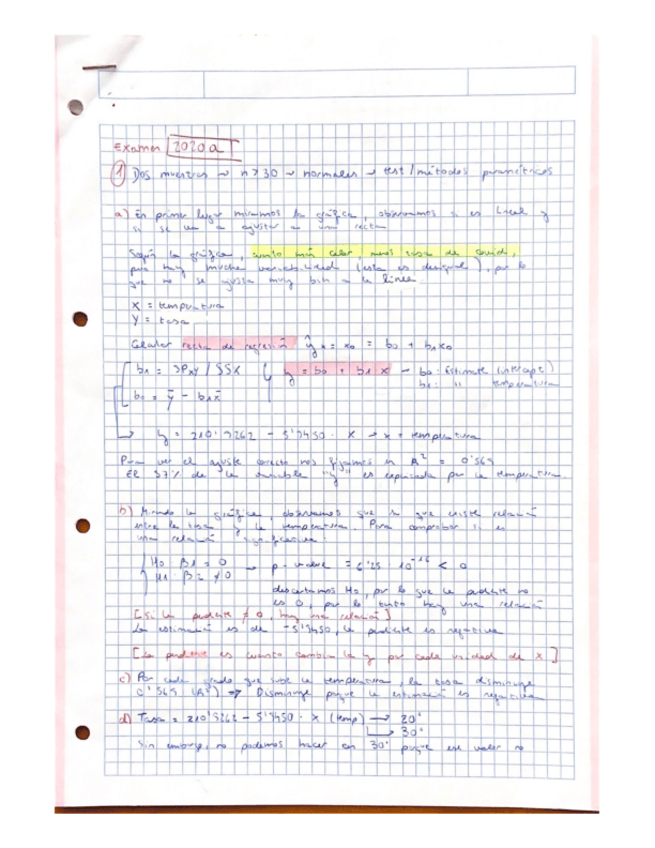 Examen 2020a
① Dos muestras ~ n > 30 ~ normales → test / métodos paramétricos
a) En primer lugar miramos la gráfica, observamos si es lineal y
si se va a ajustar a una recta
Según la gráfica, cuanto más calor, menos tasa de covid,
pero hay mucha variabilidad (esta es desigual), por lo
que no se ajusta muy bien a la línea
X = temperatura
Y = tasa
Calcular recta de regresión ŷx = x0 = b0 + b1x0
b1 = SPxy / SSx y = b0 + b1 x - b0: Estimate (intercept)
b1: " temperatura
b0 = ȳ - b1x̄
y = 210'9262 - 5'9450 · X → x = temperatura
Para ver el ajuste correcto nos fijamos en R² = 0'569
El 57% de la variable "y" es explicada por la temperatura.
b) Mirando la gráfica, observamos que sí que existe relación
entre la tasa y la temperatura. Para comprobar si es
una relación significativa:
H0 β1 = 0 → p-value = 6'25 · 10⁻¹⁶ < 0
H1: β1 ≠ 0
descartamos H0, por lo que la pendiente no
es 0, por lo tanto hay una relación
[Si la pendiente ≠ 0, hay una relación]
La estimación es de -5'9450, la pendiente es negativa
[La pendiente es cuanto cambia la y por cada unidad de x]
c) Por cada grado que sube la temperatura, la tasa disminuye
0'569 (R²) → Disminuye porque la estimación es negativa
d) Tasa = 210'9262 - 5'9450 · X (temp) → 20°
→ 30°
Sin embargo, no podemos hacer con 30° porque ese valor no